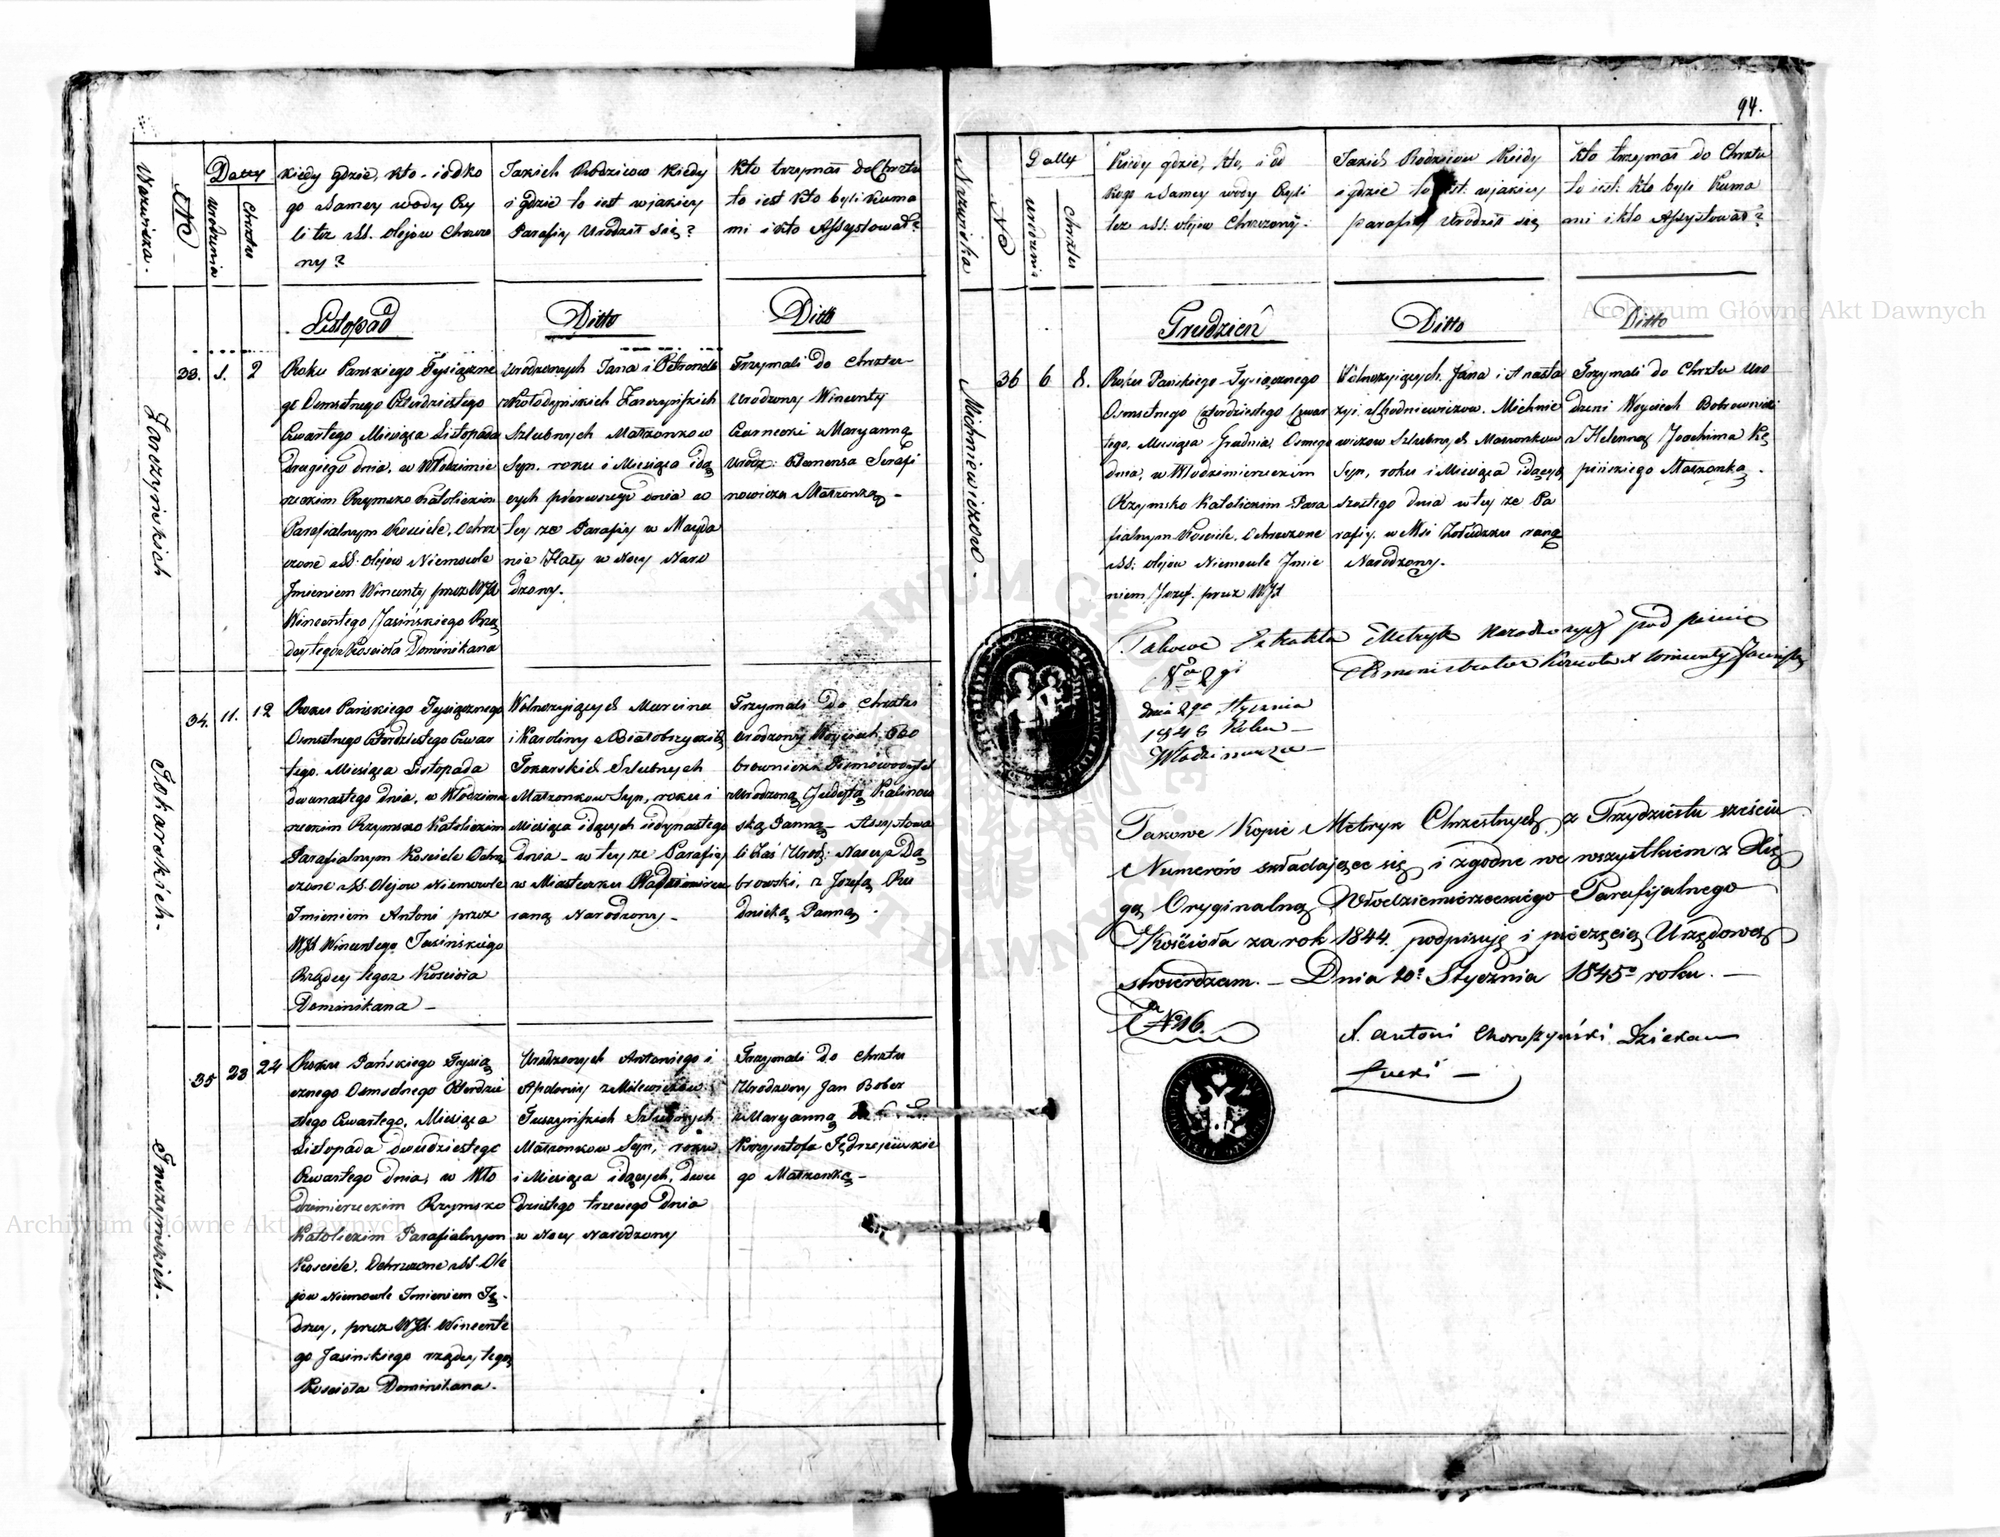 94.
Nazwiska.
No
Datty
Urodzenia
Chrztu
Kiedy gdzie, kto - i od ko
go z samey wody czy
li też z SS. Olejów Chrzczo
ny?
Jakich Rodziców kiedy
i gdzie to iest w jakiey
Parafiy Urodził się?
Kto trzymał do Chrztu
to iest kto byli Kuma
mi i kto Assystował?
Listopad
Ditto
Ditto
Zarczyńskich
33. 1. 2
Roku Panskiego Tysiączne
go Osmsetnego Czterdziestego
Czwartego Miesiąca Listopada
drugiego dnia, w Włodzimie
rzeckim Rzymsko Katolickim
Parafialnym Kosciele, Ochrz
czone z SS. Olejów Niemowle
Jmieniem Wincenty przez WJX
Wincentego Jasińskiego Rzą
dcy tegoz Koscioła Dominikana
Urodzonych Jana i Petroneli
z Kołodyńskich Zarczyńskich
Szlubnych Małzonkow
Syn. roku i Miesiąca idą
cych pierwszego dnia w
tey ze Parafiy w Mayda
nie Huty w Nocy Naro
dzony.
Trzymali do Chrztu
Urodzony Wincenty
Czarnecki z Maryanną
Urodz: Klemensa Serafi
nowicza Małzonką -
Tokarskich.
34. 11. 12
Roku Pańskiego Tysiącznego
Osmsetnego Czterdziestego Czwar
tego. Miesiąca Listopada
dwunastego dnia, w Włodzimie
rzeckim Rzymsko Katolickim
Parafialnym Kosciele Ochrz
czone z SS. Olejow Niemowle
Imieniem Antoni przez
WJX Wincentego Jasińskiego
Rządcy tegoz Koscioła
Dominikana -
Wolnozyiących Marcina
i Karoliny z Białobrzyckich
Tokarskich Szlubnych
Małzonkow Syn, roku i
Miesiąca idących iedynastego
dnia - w tey ze Parafiy
w Miasteczku Włodzimircu
rano Narodzony -
Trzymali do Chrztu
Urodzony Woyciech Bo
brownicki
z Urodzoną Judytą Kalinow
ską Panną - Assystowa
li Zaś Urodz: Da
browski, z Jozefą Ru
dnicką Panną.
Truszyńskich.
35 23 24
Roku Pańskiego Tysią
cznego Osmsetnego Czterdzie
stego Czwartego, Miesiąca
Listopada dwudziestego
Czwartego dnia, w Wło
dzimierzeckim Rzymsko
Katolickim Parafialnym
Kosciele, Ochrzczone z SS. Ole
jow Niemowle Jmieniem Ję
drzey, przez WJX. Wincente
go Jasinskiego rządcy tegoz
Koscioła Dominikana.
Urodzonych Antoniego i
Apolonii z Milewiczów
Truszyńskich Szlubnych
Małzonkow Syn, roku
i Miesiąca idących, dwu
dziestego trzeciego dnia
w Nocy Narodzony
Trzymali do Chrztu
Urodzony Jan Bober
z Maryanną
Krzysztofa Jędrzejewskie
go Małzonką -
Nazwiska
No
Datty
Urodzenia
Chrztu
Kiedy gdzie, kto, i od
kogo z Samey wody Czyli
tez z SS: olejow Chrzczony.
Jakich Rodziców Kiedy
i gdzie to iest w jakiey
Parafiy Urodził się
Kto trzymał do Chrztu
to iest: kto byli Kuma
mi i kto Assystował?
Grudzień
Ditto
Ditto
Michniewiczow.
36 6 8.
Roku Pańskiego Tysiącznego
Osmsetnego Czterdziestego Czwar
tego, Miesiąca Grudnia, Osmego
dnia, w Włodzimierzeckim
Rzymsko Katolickim Para
fialnym Kosciele, Ochrzczone
z SS: olejow Niemowle Jmie
niem Jozef. przez WJX
Wolnozyiących, Jana i Anasta
zyi z Chodniewiczow. Michnie
wiczow Szlubnych Małzonkow
Syn, roku i Miesiąca idących
szostego dnia w tey ze Pa
rafiy. w Wsi Zołudzku rano
Narodzony.
Trzymali do Chrztu Uro
dzeni Woyciech Bobrownicki
z Helenną Joachima Kę
pińskiego Małzonką.
Takowe Extrakta Metryk pod pisuię
Administrator Koscioła X Wincenty Jasiński
dnia 2go Stycznia
1845 Roku -
Takowe Kopie Metryk Chrzestnych, z Trzydziestu sześciu
Numerów składające się, i zgodne we wszystkiem z Xię
gą Oryginalną Włodzimierzeckiego Parafijalnego
Kościoła za rok 1844. podpisuję i pieczęcią Urzędową
stwierdzam. - Dnia 20o Stycznia 1845o roku. -
No 16.
X. Antoni Choroszyński Dziekan
Łucki -
Archiwum Główne Akt Dawnych
Archiwum Główne Akt Dawnych